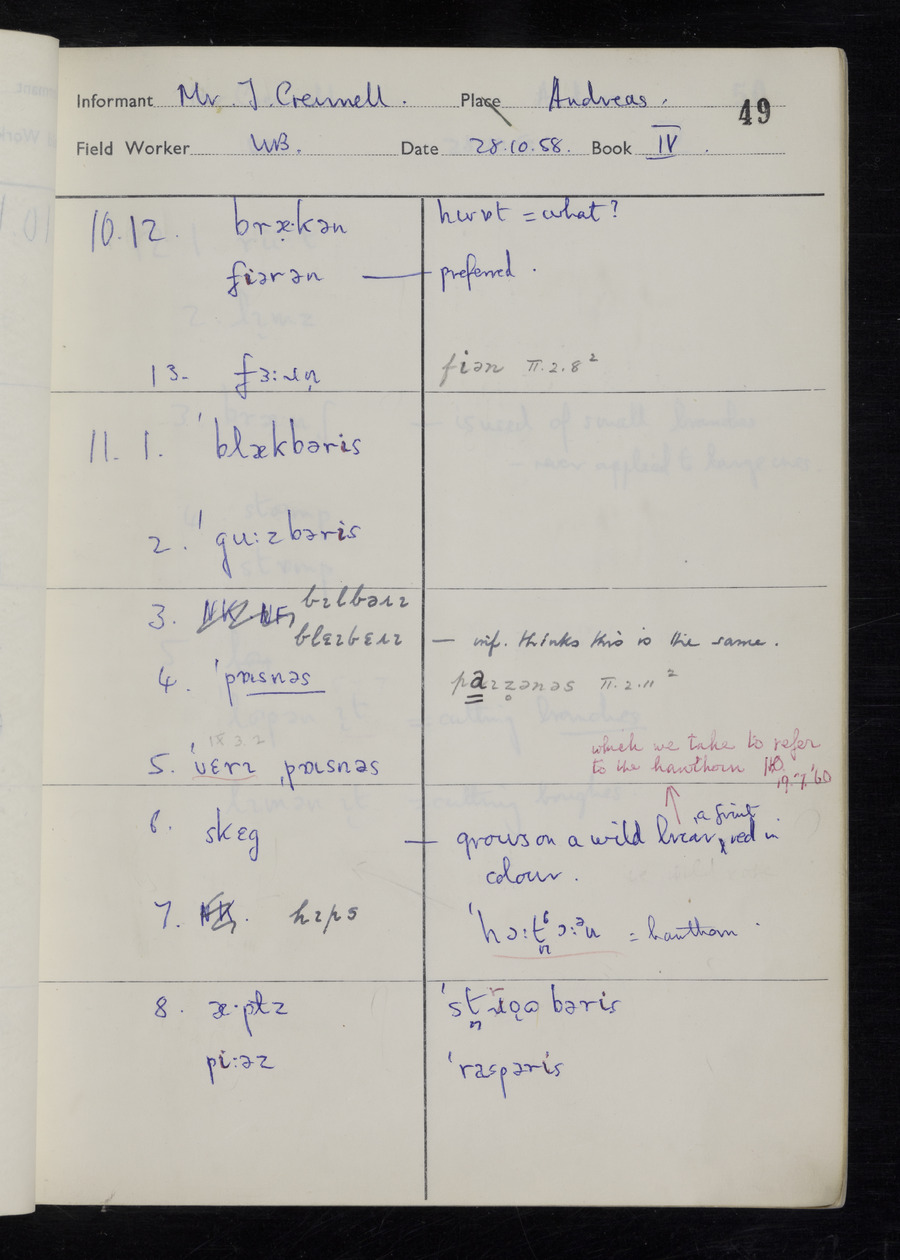 Informant Mr. J. Crennell. Place Andreas.
49
Field Worker WB. Date 28.10.58. Book IV.
10.12. bræ̣·kən hwɒt = what?
fiərən — preferred.
13. fɜ:ɹn̩ fiən II.2.8²
11. 1. ˈblækbəris
2. ˈgu:zbəris
3. NK NF bɪlbəɹɪ
blɛɪbɛɹɪ — inf. thinks this is the same.
4. ˈpɑɪsnəs paɪz̥ənəs II.2.11²
IX 3.2
5. ˈvɛrɪ ˌpɑɪsnəs
which we take to refer
to the hawthorn 19.7.'60
6. skɛg — grows on a wild briar, a fruit, red in
colour.
7. NK. hɪps ˈhɔ:t̪ɔ:ᵊn = hawthorn.
8. æ·pɫz ˈst̪ɹɔ̨ɷbəris
pi:əz ˈraspəris